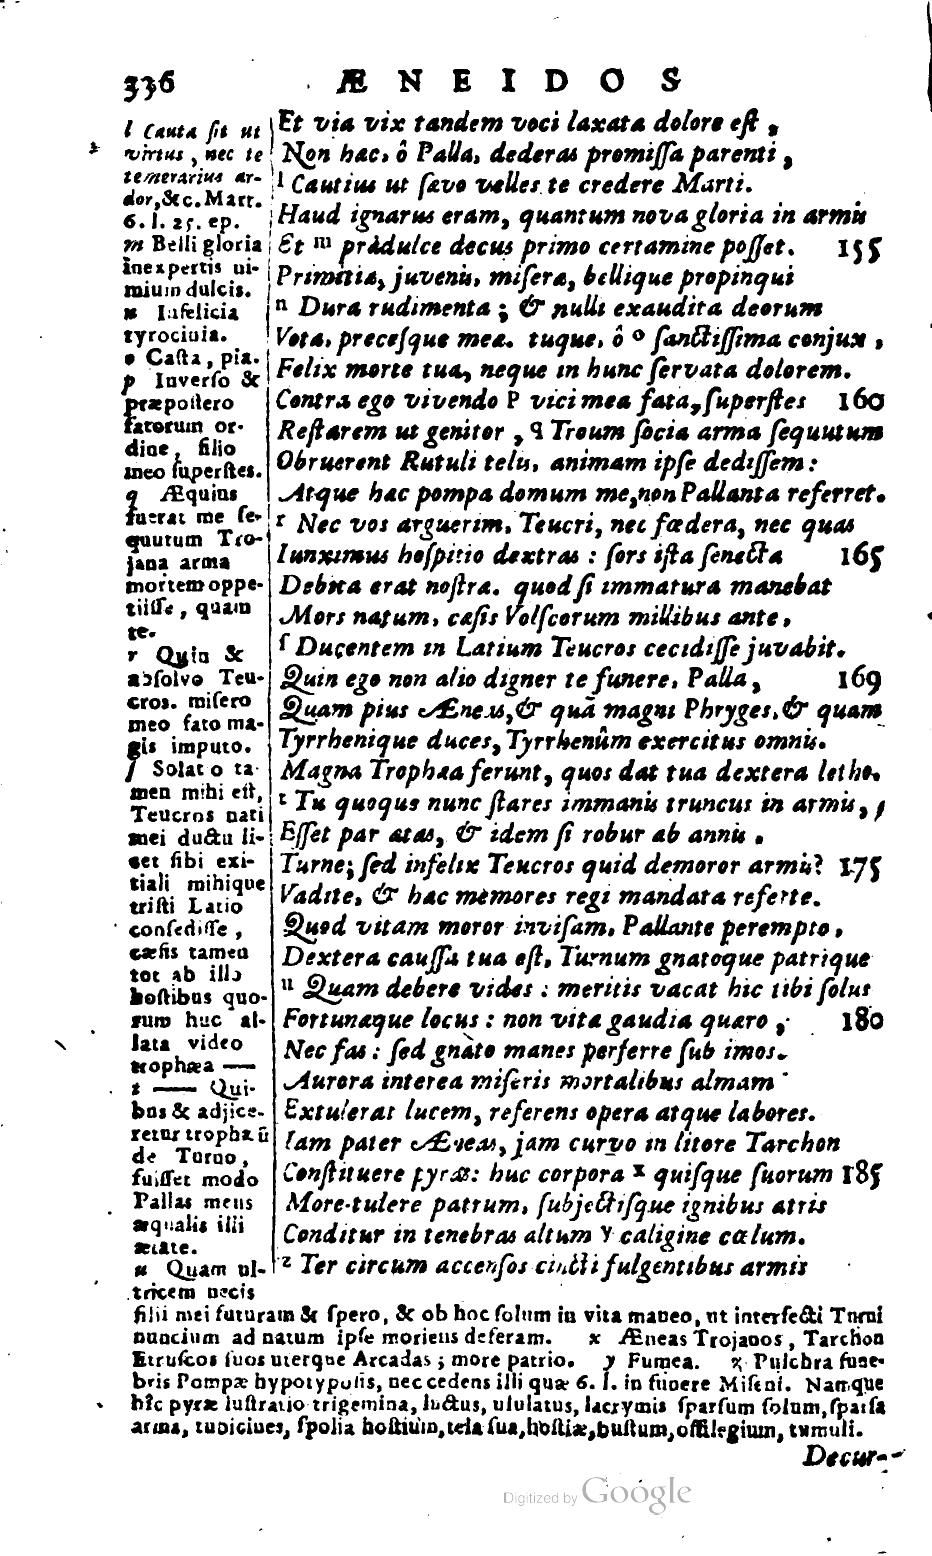 336
ÆNEIDOS
l Cauta sit ut
virtus, nec te
temerarius ar-
dor, &c. Mart.
6. l. 25. ep.
m Belli gloria
inexpertis ni-
mium dulcis.
n Infelicia
tyrocinia.
o Casta, pia.
p Inverso &
præpostero
fatorum or-
dine, filio
meo superstes.
q Æquius
fuerat me se-
quutum Tro-
jana arma
mortem oppe-
tiisse, quam
te.
r Quin &
absolvo Teu-
cros. misero
meo fato ma-
gis imputo.
ſ Solatio ta-
men mihi est,
Teucros nati
mei ductu li-
cet sibi exi-
tiali mihique
tristi Latio
consedisse,
cæsis tamen
tot ab illo
hostibus quo-
rum huc al-
lata video
trophæa —
t — Qui-
bus & adjice-
retur trophæũ
de Turno,
fuisset modo
Pallas meus
æqualis illi
ætate.
u Quam ul-
tricem necis
Et via vix tandem voci laxata dolore est,
Non hæc, ô Palla, dederas promissa parenti,
l Cautius ut sævo velles te credere Marti.
Haud ignarus eram, quantum nova gloria in armis
Et m prædulce decus primo certamine posset. 155
Primitiæ, juvenis, miseræ, bellique propinqui
n Dura rudimenta; & nulli exaudita deorum
Vota, precesque meæ. tuque, ô o sanctissima conjux,
Felix morte tua, neque in hunc servata dolorem.
Contra ego vivendo p vici mea fata, superstes 160
Restarem ut genitor, q Troum socia arma sequutum
Obruerent Rutuli telis, animam ipse dedissem:
Atque hæc pompa domum me, non Pallanta referret.
r Nec vos arguerim, Teucri, nec fœdera, nec quas
Iunximus hospitio dextras: sors ista senecta 165
Debita erat nostra. quod si immatura manebat
Mors natum, cæsis Volscorum millibus ante,
ſ Ducentem in Latium Teucros cecidisse juvabit.
Quin ego non alio digner te funere, Palla, 169
Quam pius Æneas, & quã magni Phryges, & quam
Tyrrhenique duces, Tyrrhenûm exercitus omnis.
Magna Trophæa ferunt, quos dat tua dextera letho.
t Tu quoque nunc stares immanis truncus in armis,
Esset par ætas, & idem si robur ab annis.
Turne; sed infelix Teucros quid demoror armis? 175
Vadite, & hæc memores regi mandata referte.
Quod vitam moror invisam, Pallante perempto,
Dextera caussa tua est, Turnum gnatoque patrique
u Quam debere vides: meritis vacat hic tibi solus
Fortunæque locus: non vitæ gaudia quæro, 180
Nec fas: sed gnato manes perferre sub imos.
Aurora interea miseris mortalibus almam
Extulerat lucem, referens opera atque labores.
Iam pater Æneas, jam curvo in litore Tarchon
Constituere pyras: huc corpora x quisque suorum 185
More tulere patrum, subjectisque ignibus atris
Conditur in tenebras altum y caligine cœlum.
z Ter circum accensos cincti fulgentibus armis
filii mei futuram & spero, & ob hoc solum in vita maneo, ut interfecti Turni
nuncium ad natum ipse moriens deferam. x Æneas Trojanos, Tarchon
Etruscos suos uterque Arcadas; more patrio. y Fumea. z Pulchra fune-
bris Pompæ hypotyposis, nec cedens illi quæ 6. l. in funere Miseni. Namque
hîc pyræ lustratio trigemina, luctus, ululatus, lacrymis sparsum solum, sparsa
arma, tubicines, spolia hostium, tela sua, hostiæ, bustum, ossilegium, tumuli.
Decur-
Digitized by Google